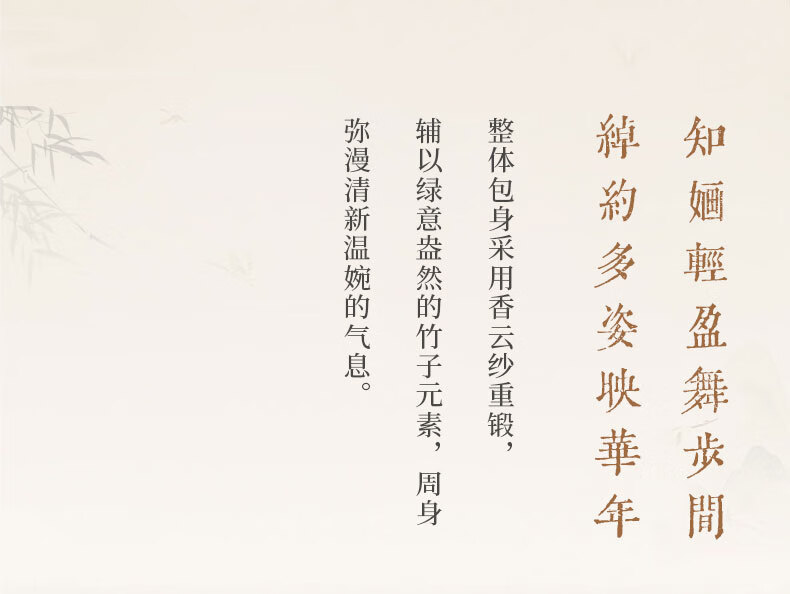 知婳輕盈舞步間
綽約多姿映華年
整体包身采用香云纱重锻，
辅以绿意盎然的竹子元素，周身
弥漫清新温婉的气息。